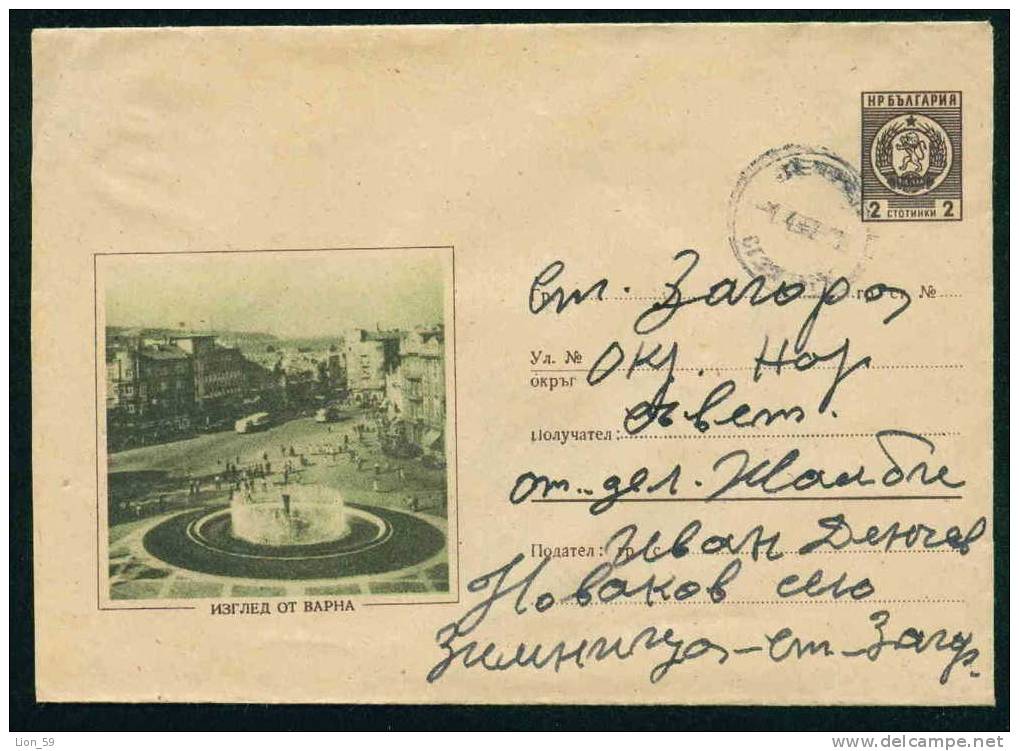 НР БЪЛГАРИЯ
2 СТОТИНКИ 2
ст. Загора
№
Ул. №
окръг
Окр. Нар.
съвет.
Получател:
от. дел. Жалби
Подател: гр./с.
Иван Денчев
Новаков село
Зимница – ст. Загор.
ИЗГЛЕД ОТ ВАРНА
Lion_59
www.delcampe.net